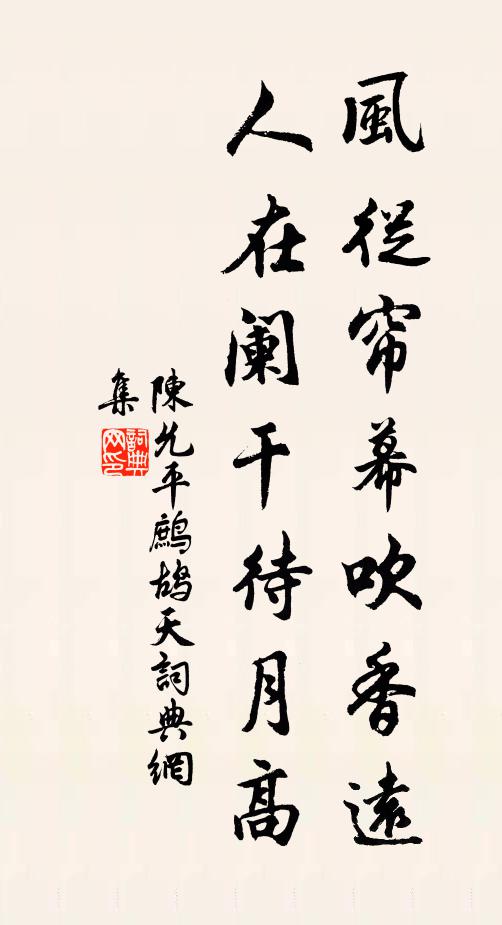 風從帘幕吹香遠
人在阑干待月高
陳允平鷓鴣天詞典網
集
詞典網印